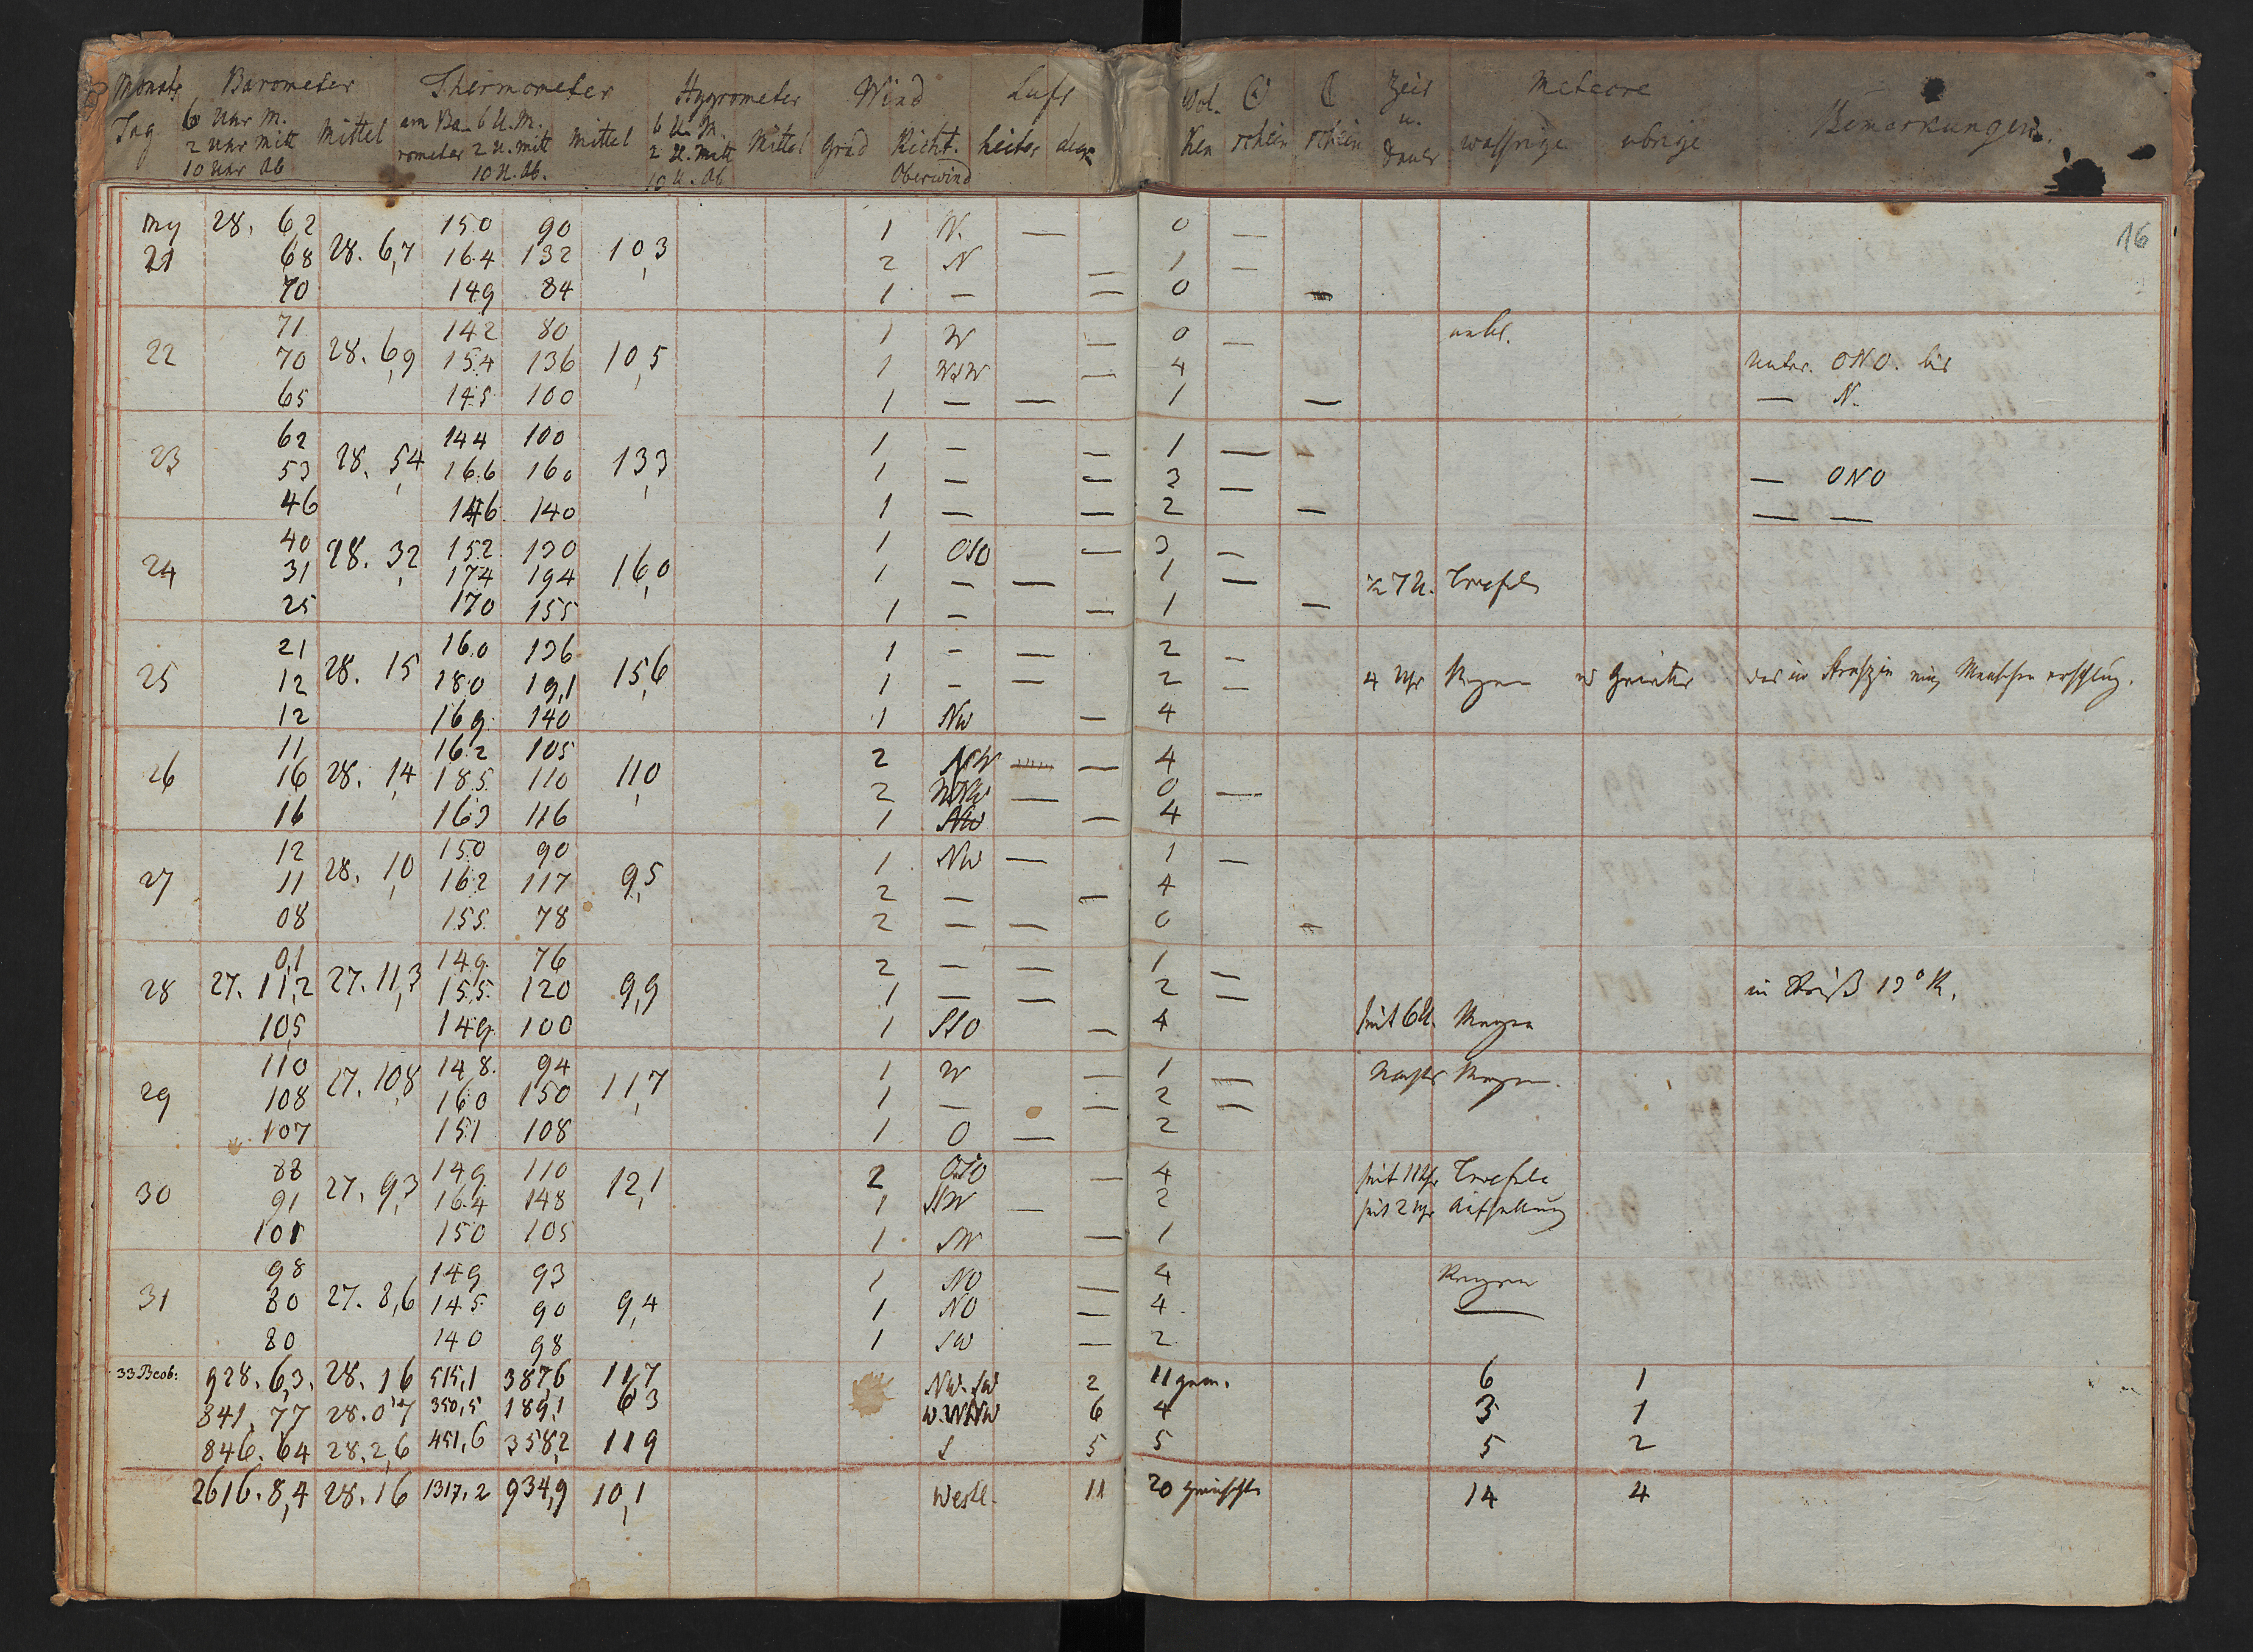 Monats Barometer Thermometer Hygrometer Wind Luft Wol- ☉ ☾ Zeit Meteore
Tag 6 Uhr M. Mittel am Ba- 6 U. M. Mittel 6 U. M. Mittel Grad Richt. heiter Ken schein schein u. wassrige ubrige Bemerkungen.
2 Uhr Mitt rometer 2 U. mitt 2 U. Mitt Dauer
10 Uhr Ab 10 U. Ab. 10 U. Ab Oberwind
16
My 28. 6,2 150 90 1 N. — 0 —
21 68 28. 6,7 16.4 132 10,3 2 N — 1 —
70 149 84 1 — — 0 —
71 142 80 1 W — 0 —
22 70 28. 6,9 15.4 136 10,5 1 WSW — 4 unter. ONO. bis
65 145 100 1 — — 1 — — N.
62 144 100 1 — — 1 —
23 53 28. 5,4 16.6 160 13,3 1 — — 3 — — ONO
46 146 140 1 — — 2 — — —
40 28. 3,2 152 130 1 OSO — 3 —
24 31 174 194 16,0 1 — — 1 — ½ 7 U.
25 170 155 1 — — 1 —
21 160 136 1 — — 2 —
25 12 28. 15 180 19,1 15,6 1 — — 2 — 4 Uhr Regen
12 169 140 1 NW — 4
11 16.2 105 2 NW — 4
26 16 28. 1,4 18.5 110 11,0 2 — 0 —
16 163 116 1 NW — 4
12 150 90 1 NW — 1 —
27 11 28. 1,0 162 117 9,5 2 — — 4
08 155 78 2 — — 0 —
0,1 149 76 2 — — 1 —
28 27. 11,2 27. 11,3 155 120 9,9 1 — — 2 — 13° R.
10,5 149 100 1 SSO — 4 seit 6 U. Regen
110 148 94 1 W — 1 — Nachts Regen.
29 108 27. 10,8 160 150 11,7 1 — — 2 —
107 151 108 1 O — 2
88 149 110 2 OSO — 4 seit 11 Uhr
30 91 27. 9,3 16.4 148 12,1 1 SSW — 2 seit 2 Uhr
101 150 105 1 SW — 1
98 149 93 1 NO — 4 Regen
31 80 27. 8,6 145 90 9,4 1 NO — 4 —
80 140 98 1 SW — 2
33 Beob: 928. 6,3. 28. 16 515,1 387,6 11,7 NW. SW 2 11 gem. 6 1
841. 77 28. 0,7 350,5 189,1 6 3 W. WNW 6 4 3 1
846. 64 28. 2,6 451,6 358,2 119 S 5 5 5 2
2616. 8,4 28. 16 1317. 2 934,9 10,1 Westl. 11 20 gemischt 14 4